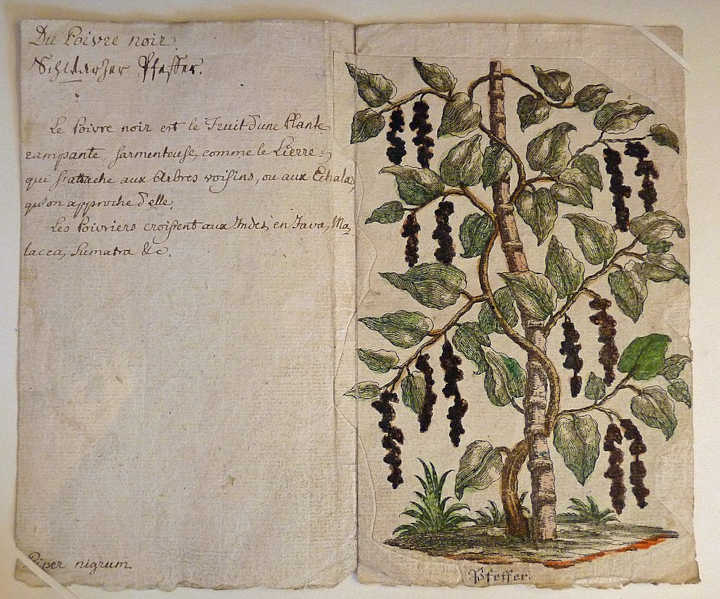 Du Poivre noir.
Schwarzer Pfeffer.
Le Poivre noir est le Fruit d'une Plante
rampante, sarmenteuse, comme le Lierre,
qui s'attache aux Arbres voisins, ou aux
qu'on approche d'elle.
Les Poivriers croissent aux Indes, en Java, Ma-
lacca, Sumatra &c.
Piper nigrum
Pfeffer.